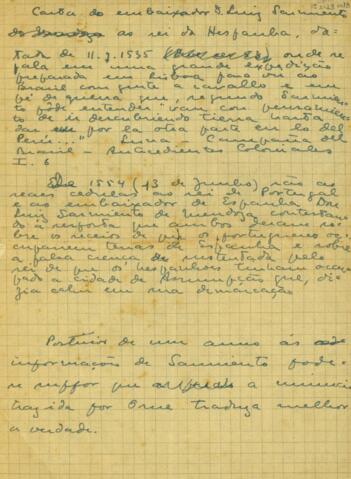 Carta do embaixador D. Luiz Sarmiento
de ao rei da Hespanha, da-
tada de 11.7.1535 onde se
fala em uma grande expedição
preparada em Lisboa para ir ao
Brasil com gente a cavallo e em
pé de guerra que, segundo Sarmien-
to pôde entender "van con pensamien-
to de ir descubriendo tierra hasta
dar por la otra parte en lo del
Peru..." Campaña del
Brasil – Antecedentes Coloniales
I. 6
De 1554 (13 de Junho) são as
reaes cedulas ao rei de Portugal
e ao embaixador de Espanha Don
Luiz Sarmiento de Mendoza contestan-
do a resposta que ambos deram so-
bre os receios de que os portugueses oc-
cupassem terras de Espanha e sobre
a falsa crença sustentada pelo
rei de que os hespanhoes tinham occu-
pado a cidade de Assumpção que, di-
zia cahir em sua demarcação
Posterior de um anno ás
informações de Sarmiento pode-
se suppor que a noticia
trazida por traduza melhor
a verdade.